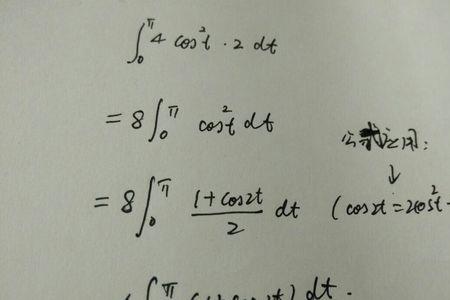 ∫₀^π 4 cos²t · 2 dt
= 8 ∫₀^π cos²t dt
公式应用:
↓
= 8 ∫₀^π (1+cos2t)/2 dt (cos2t = 2cos²t-
∫₀^π dt.